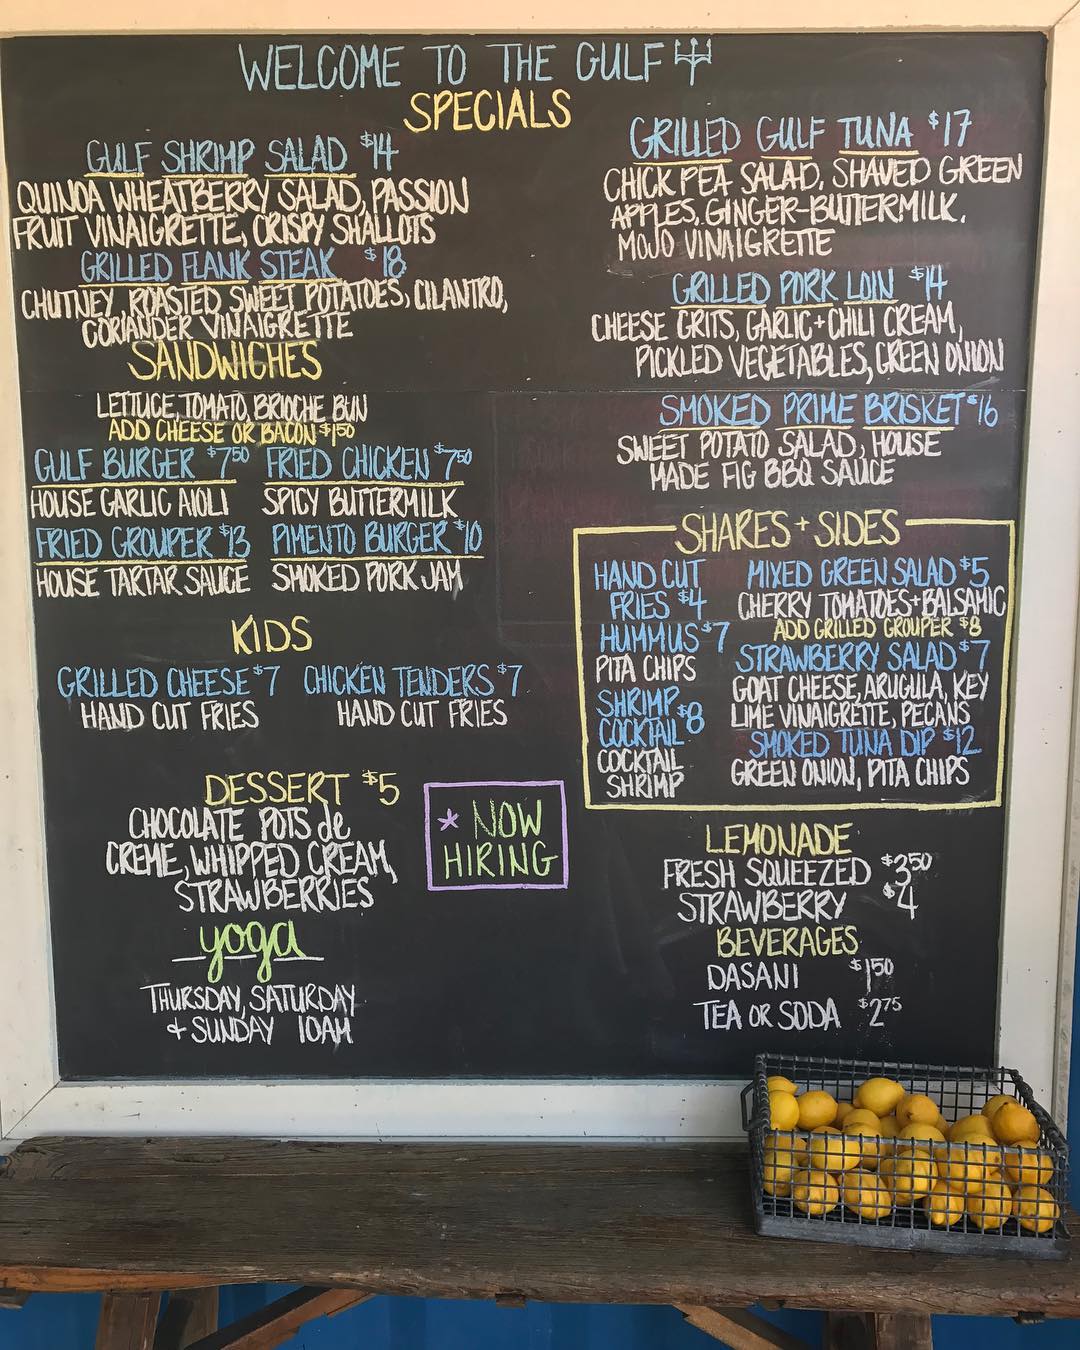 WELCOME TO THE GULF
SPECIALS
GULF SHRIMP SALAD $14
QUINOA WHEATBERRY SALAD, PASSION
FRUIT VINAIGRETTE, CRISPY SHALLOTS
GRILLED FLANK STEAK $18
CHUTNEY, ROASTED SWEET POTATOES, CILANTRO,
CORIANDER VINAIGRETTE
SANDWICHES
LETTUCE, TOMATO, BRIOCHE BUN
ADD CHEESE OR BACON $1.50
GULF BURGER $7.50 FRIED CHICKEN $7.50
HOUSE GARLIC AIOLI SPICY BUTTERMILK
FRIED GROUPER $13 PIMENTO BURGER $10
HOUSE TARTAR SAUCE SMOKED PORK JAM
KIDS
GRILLED CHEESE $7 CHICKEN TENDERS $7
HAND CUT FRIES HAND CUT FRIES
DESSERT $5
CHOCOLATE POTS de
CREME, WHIPPED CREAM,
STRAWBERRIES
yoga
THURSDAY, SATURDAY
+ SUNDAY 10AM
* NOW
HIRING
GRILLED GULF TUNA $17
CHICK PEA SALAD, SHAVED GREEN
APPLES, GINGER-BUTTERMILK,
MOJO VINAIGRETTE
GRILLED PORK LOIN $14
CHEESE GRITS, GARLIC + CHILI CREAM,
PICKLED VEGETABLES, GREEN ONION
SMOKED PRIME BRISKET $16
SWEET POTATO SALAD, HOUSE
MADE FIG BBQ SAUCE
SHARES + SIDES
HAND CUT
FRIES $4
HUMMUS $7
PITA CHIPS
SHRIMP
COCKTAIL $8
COCKTAIL
SHRIMP
MIXED GREEN SALAD $5
CHERRY TOMATOES + BALSAMIC
ADD GRILLED GROUPER $8
STRAWBERRY SALAD $7
GOAT CHEESE, ARUGULA, KEY
LIME VINAIGRETTE, PECANS
SMOKED TUNA DIP $12
GREEN ONION, PITA CHIPS
LEMONADE
FRESH SQUEEZED $3.50
STRAWBERRY $4
BEVERAGES
DASANI $1.50
TEA OR SODA $2.75